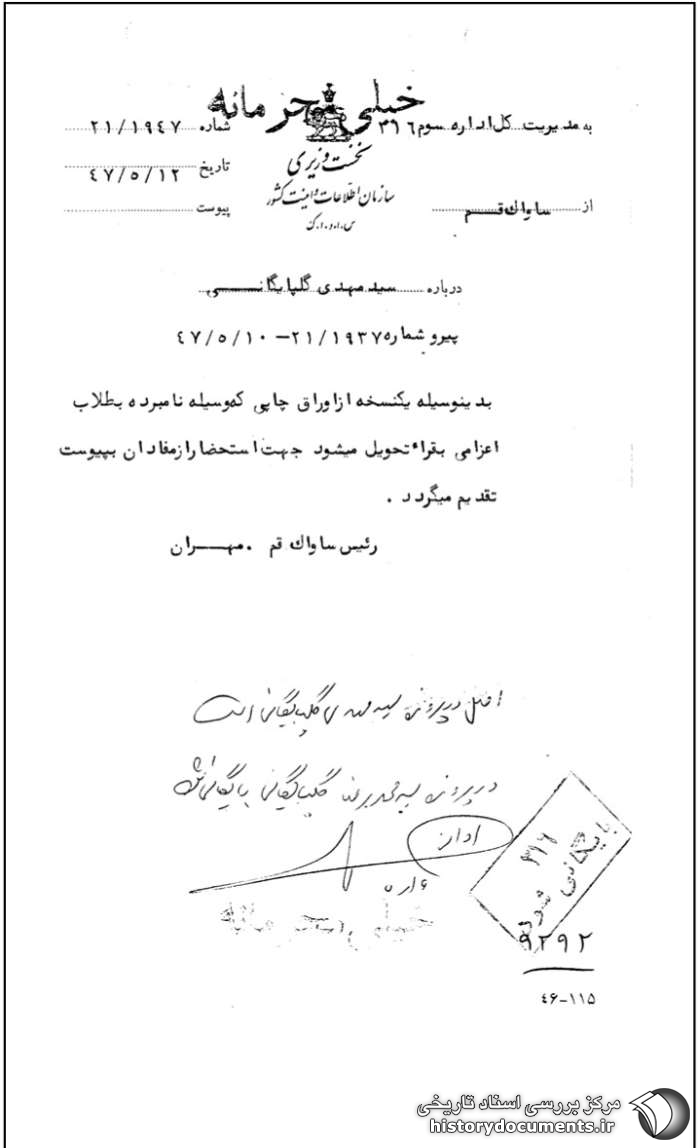 خیلی محرمانه
به مدیریت کل اداره سوم ۳۱۶
شماره ۲۱/۱۹٤۷
نخست وزیری
تاریخ ٤۷/٥/۱۲
سازمان اطلاعات و امنیت کشور
از ساواك قم
پیوست
س.ا.و.ا.ک
درباره سید مهدی گلپایگانی
پیرو شماره ۲۱/۱۹۳۷ – ٤۷/٥/۱۰
بدینوسیله یکنسخه از اوراق چاپی که وسیله نامبرده بطلاب
اعزامی بقراء تحویل میشود جهت استحضار از مفاد ان بپیوست
تقدیم میگردد .
رئیس ساواك قم . مهران
اصل در پرونده سید مهدی گلپایگانی است
در پرونده سید محمدرضا گلپایگانی بایگانی شود
۳۱۶
بایگانی شود
خیلی محرمانه
۹۲۹۲
٤۶-۱۱۵
مرکز بررسی اسناد تاریخی
historydocuments.ir